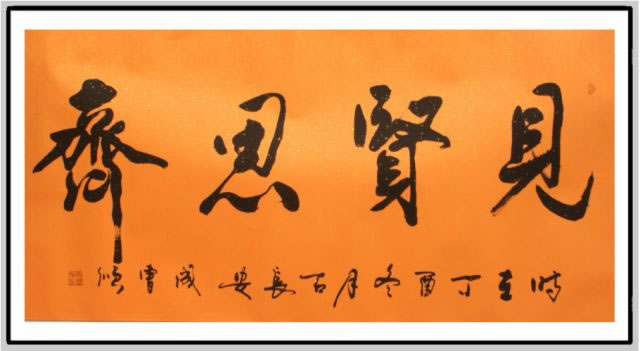 見賢思齊
時在丁酉冬月古長安成曹順